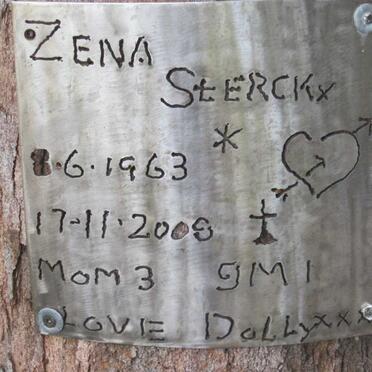 ZENA
StERCKx
8.6.1963 *
17-11.2008
MOM 3 GM 1
LOVE DOLLYxxx